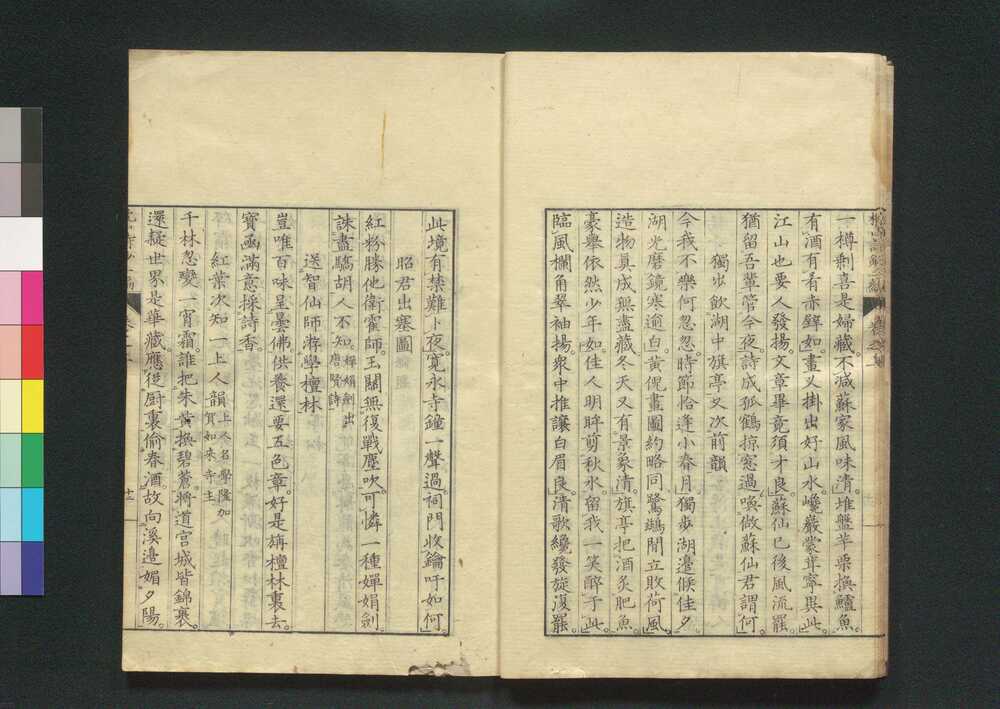 一樽剩喜是婦藏。不減蘇家風味清。堆盤芋栗換鱸魚。
有酒有肴赤壁如。畫叉掛出好山水。巉巖蒙茸寧異此。
江山也要人發揚。文章畢竟須才良。蘇仙已後風流罷。
猶留吾輩管今夜。詩成孤鶴掠窓過。喚做蘇仙君謂何。
獨步飲湖中旗亭又次前韻
今我不樂何忽忽。時節恰逢小春月。獨步湖邊候佳夕。
湖光磨鏡寒逾白。黃倪畫圖約略同。鷺鷀閒立敗荷風。
造物真成無盡藏。冬天又有景象清。旗亭把酒炙肥魚。
豪舉依然少年如。佳人明眸剪秋水。留我一笑醉于此。
臨風欄角翠袖揚。衆中推讓白眉良。清歌纔發旋復罷。
此境有禁難卜夜。寛永寺鐘一聲過。祠門收鑰吁如何。
昭君出塞圖
紅粉勝他衛霍師。玉關無復戰塵吹。可憐一種嬋娟劍。
誅盡驕胡人不知。嬋娟劍出唐賢詩
送智仙師游學檀林
豈唯百味呈曇佛。供養還要五色章。好是旃檀林裏去。
寶函滿意採詩香。
紅葉次知一上人韻 上人名學隆加賀如來寺主
千林忽變一宵霜。誰把朱黃換碧蒼。將道宮城皆錦裹。
還疑世界是華藏。應從厨裏偷春酒。故向溪邊媚夕陽。